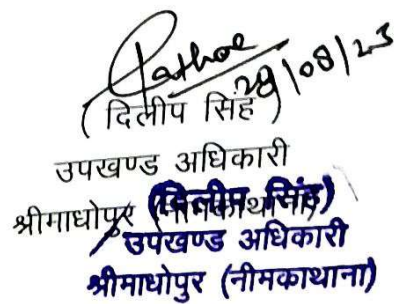 28/08/23
( दिलीप सिंह )
उपखण्ड अधिकारी
श्रीमाधोपुर (नीमकाथाना)
(दिलीप सिंह)
उपखण्ड अधिकारी
श्रीमाधोपुर (नीमकाथाना)